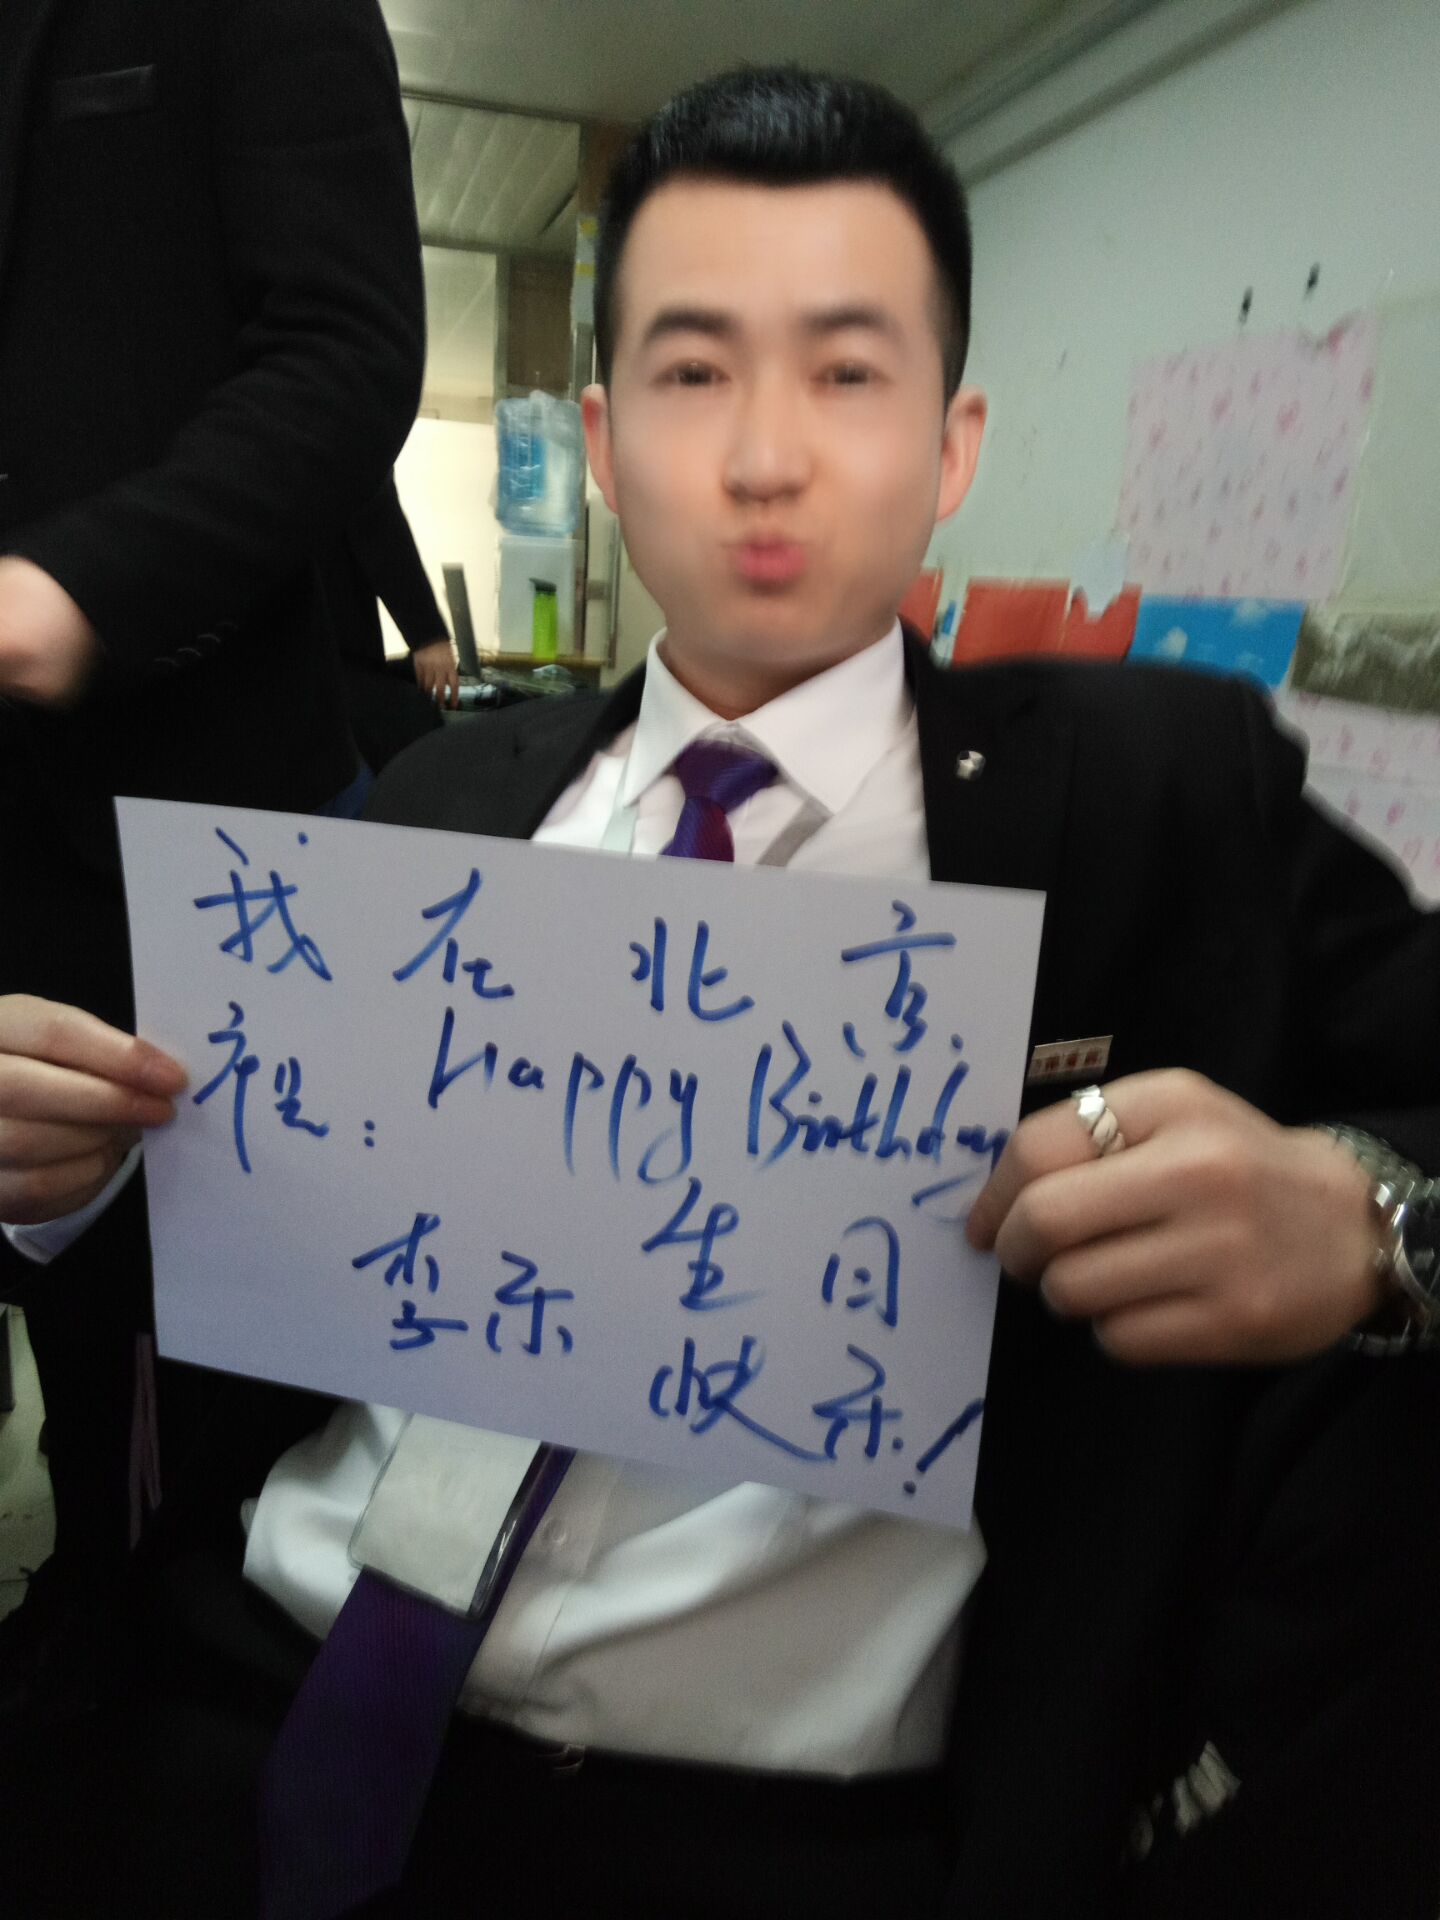 我在北京
祝:Happy Birthday
李乐 生日
快乐!